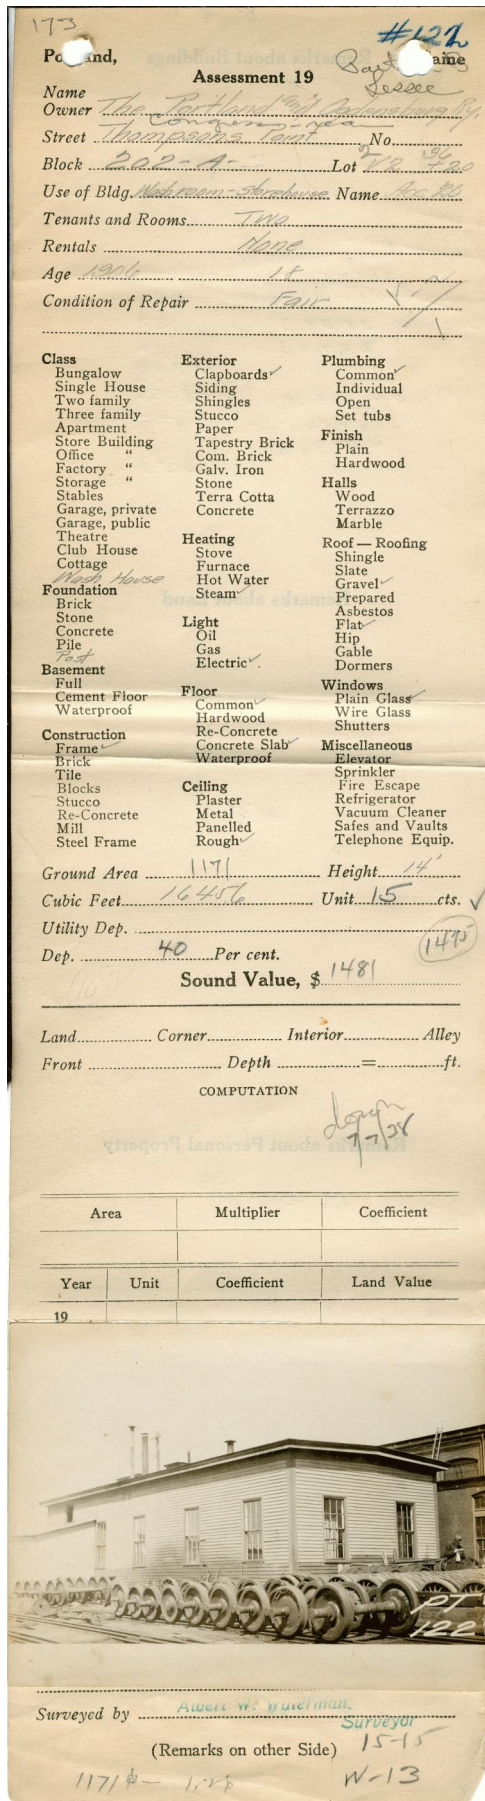 173
#122
Portland, Maine
Assessment 19
Lessee
Name
Owner The Portland and Ogdensburg Ry.
Congress rear
Street Thompsons Point No.
Block 202-A- Lot
Use of Bldg. Washroom-Storehouse Name
Tenants and Rooms Two
Rentals None
Age 1906 18
Condition of Repair Fair
Class
Bungalow
Single House
Two family
Three family
Apartment
Store Building
Office "
Factory "
Storage "
Stables
Garage, private
Garage, public
Theatre
Club House
Cottage
Wash House
Foundation
Brick
Stone
Concrete
Pile
Post
Basement
Full
Cement Floor
Waterproof
Construction
Frame ✓
Brick
Tile
Blocks
Stucco
Re-Concrete
Mill
Steel Frame
Exterior
Clapboards ✓
Siding
Shingles
Stucco
Paper
Tapestry Brick
Com. Brick
Galv. Iron
Stone
Terra Cotta
Concrete
Heating
Stove
Furnace
Hot Water
Steam ✓
Light
Oil
Gas
Electric ✓
Floor
Common ✓
Hardwood
Re-Concrete
Concrete Slab ✓
Waterproof
Ceiling
Plaster
Metal
Panelled
Rough ✓
Plumbing
Common ✓
Individual
Open
Set tubs
Finish
Plain
Hardwood
Halls
Wood
Terrazzo
Marble
Roof — Roofing
Shingle
Slate
Gravel ✓
Prepared
Asbestos
Flat ✓
Hip
Gable
Dormers
Windows
Plain Glass ✓
Wire Glass
Shutters
Miscellaneous
Elevator
Sprinkler
Fire Escape
Refrigerator
Vacuum Cleaner
Safes and Vaults
Telephone Equip.
Ground Area 1171 Height 14'
Cubic Feet 16456 Unit 15 cts. ✓
Utility Dep.
1475
Dep. 40 Per cent.
Sound Value, $ 1481
Land Corner Interior Alley
Front Depth = ft.
COMPUTATION
7/7/28
Area Multiplier Coefficient
Year Unit Coefficient Land Value
19
PT
122
Surveyed by Albert W. Waterman.
Surveyor
15-15
(Remarks on other Side)
W-13